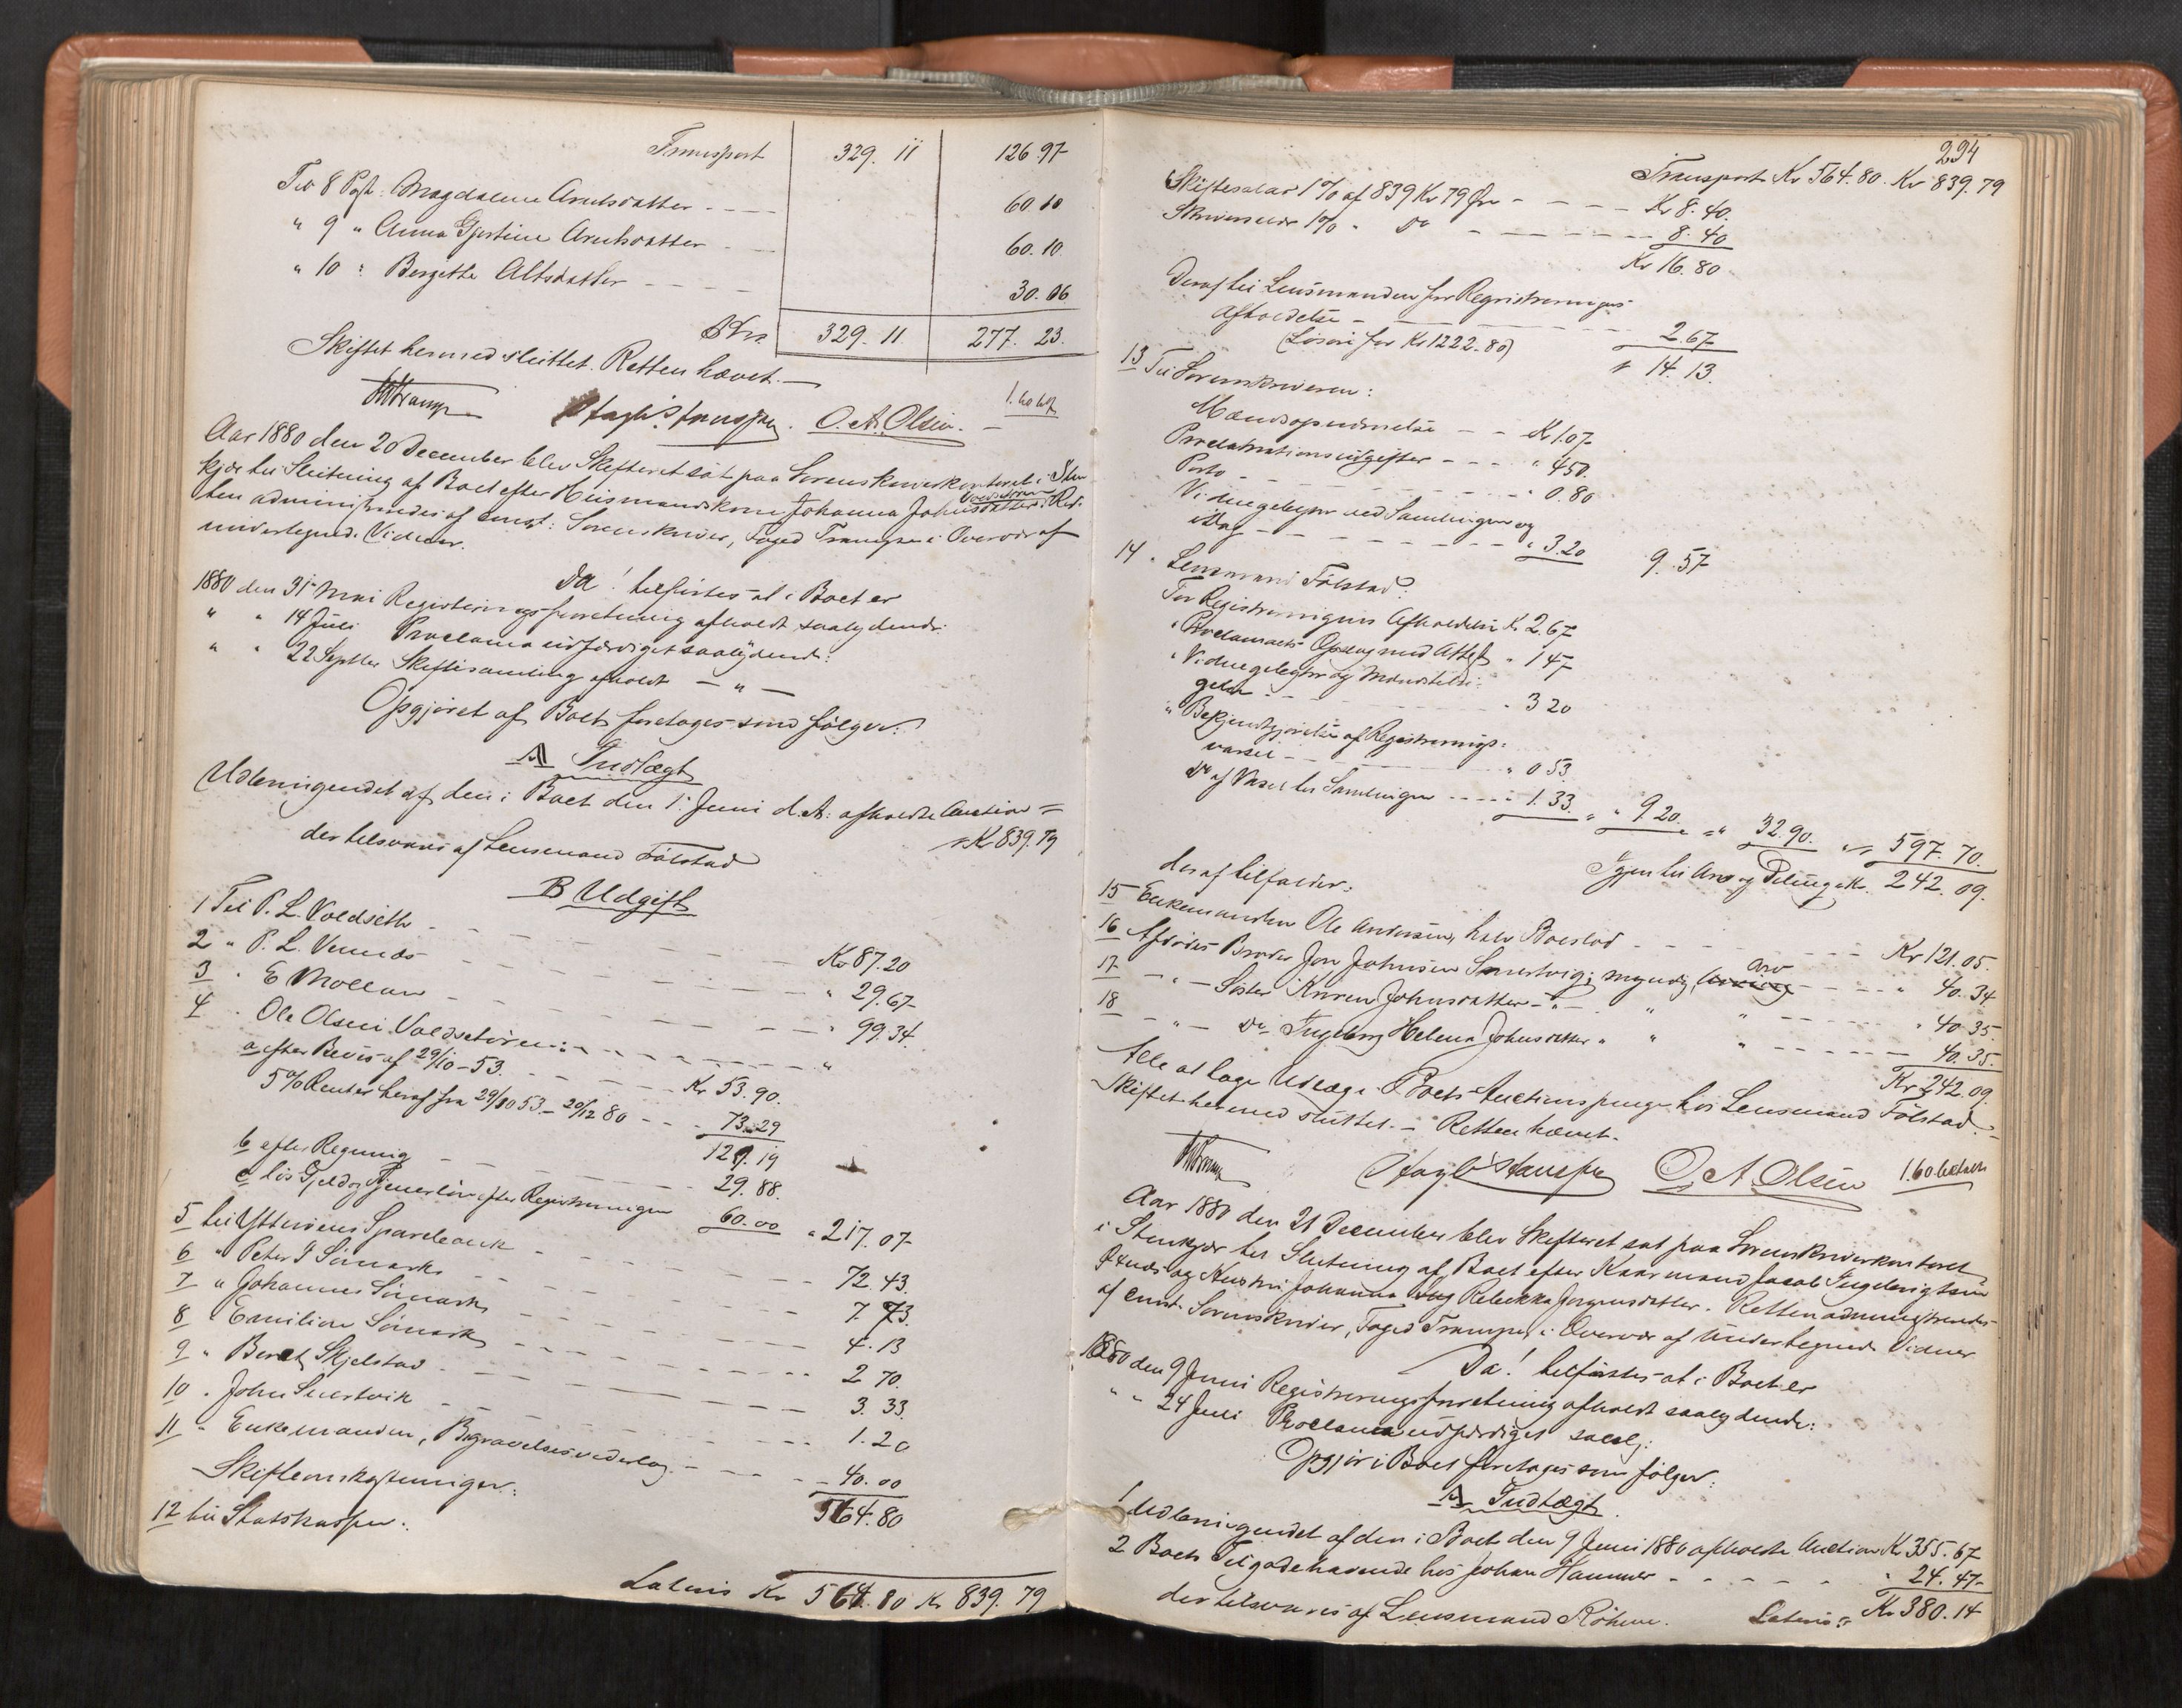 Transport 329. 11 126.97
Til 8 Post: Magdalene Arntsdatter - - - 60.10
" 9 " Anna Gjertine Arntsdatter - - 60.10
" 10 " Bergitte Altsdatter - - - - 30.06
329. 11. 277. 23.
Skiftet hermed sluttet. Retten hævet. —
O. A. Olsen. —
Aar 1880 den 20 December blev Skifteret sat paa Sorenskriverkontoret i Sten
kjær til Slutning af Boet efter Huusmandskone Johanna Johnsdatter Ret-
ten administreredes af const: Sorenskriver, Foged Trampe i Overvær af
undertegnede Vidner.
Da! tilførtes at i Boet er
1880 den 31 Mai Registreringsforretning afholdt saalydende:
" " 14 Juli Proclama udfærdiget saalydende:
" " 22 Septbr Skiftesamling afholdt — " —
Opgjøret af Boet foretages som følger:
A Indtægt
Udbringendet af den i Boet den 1. Juni d. A. afholdte Auction =
der tilsvares af Lensmand Følstad Kr 839.79
B Udgift
1 Til P. L. Voldseth - - - - Kr 87.20
2 " P. L. Vennes - - - - " 29.67
3 " E Mollan - - - - " 99.34.
4 " Ole Olsen Voldsetøren: - - - - "
a efter Bevis af 29/10-53. - - - Kr 53.90.
5% Renter heraf fra 29/10 53 - 20/12 80 - - - 73.29
127.19
b efter Regning - - - - 29.88.
c løs Gjeld og Tjenerløn efter Registreringen 60.00 " 217.07
5 til Ytterøens Sparebank - - - - 72.43.
6 " Peter I Sømark - - - - 7.73.
7 " Johannes Sømark - - - - 4.13
8 " Emilian Sømark - - - - 2 70.
9 " Beret Skjelstad - - - - 3. 33.
10 " John Snertvik - - - - 1.20
11 " Enkemanden, Begravelsesvederlag - - - - 40.00
564.80
Skifteomkostninger:
12 til Statskassen:
Lateris Kr 564.80 Kr 839.79
294
Transport Kr 564.80. Kr 839.79
Skiftesalær 1% af 839 Kr 79 Øre - - - - Kr 8.40.
Skriversalær 1% " Do - - - - 8.40
Kr 16.80
Deraf til Lensmanden for Registreringens
Afholdelse - - - - 2.67
(Løsøre for Kr 1222.80) " 14. 13.
13 Til Sorenskriveren:
Mændsopnævnelse - - Kr 1.07
Proclamationsudgifter - - - " 4 50.
Porto - - - - " 0.80
Vidnegebyr ved Samlingen og
idag - - - - " 3.20 9.57
14 " Lensmand Følstad:
For Registreringens Afholdelse Kr 2.67
" Proclamaets Opslag med Attest " 1 47
" Vidnegebyr og Mændstilsi-
gelse - - - - " 3 20
" Bekjendtgjørelse af Registrerings-
varsel - - - - " 0 53.
Do af Varsel til Samlingen - - - - 1. 33. " " 9 20. " 32.90. " 597. 70.
Igjen til Arv og Deling Kr. 242. 09.
deraf tilfalder:
15 Enkemanden Ole Andersen, halv Boeslod - - - - Kr 121.05.
16 Afdødes Broder Jon Johnsen Snertvig, myndig, arv - - - - " 40.34
17 — " — Søster Karen Johnsdatter — " — " " - - - - " 40.35.
18 — " — Do Ingeborg Helena Johnsdatter " " " - - - - 40.35.
Kr 242.09.
Alle at tage Udlæg i Boets Auctionspenge hos Lensmand Følstad. —
Skiftet hermed sluttet. — Retten hævet.
O. A. Olsen
Aar 1880 den 21 December blev Skifteret sat paa Sorenskriverkontoret
i Stenkjær til Slutning af Boet efter Kaarmand Jacob Ingebrigtsen
og Hustru Johanna Rebekka Jørgensdatter. Retten administreredes
af const. Sorenskriver, Foged Trampe, i Overvær af undertegnede Vidner
Da! tilførtes at i Boet er
1880 den 9 Juni Registreringsforretning afholdt saalydende:
" " 24 Juli Proclama udfærdiget saalyd:
Opgjør i Boet foretages som følger:
A Indtægt.
1 Udbringendet af den i Boet den 9 Juni 1880 afholdte Auction Kr 355.67
2 Boets Tilgodehavende hos Johan Hammer - - - - " 24. 47
der tilsvares af Lensmand Røhme. Lateris Kr 380.14